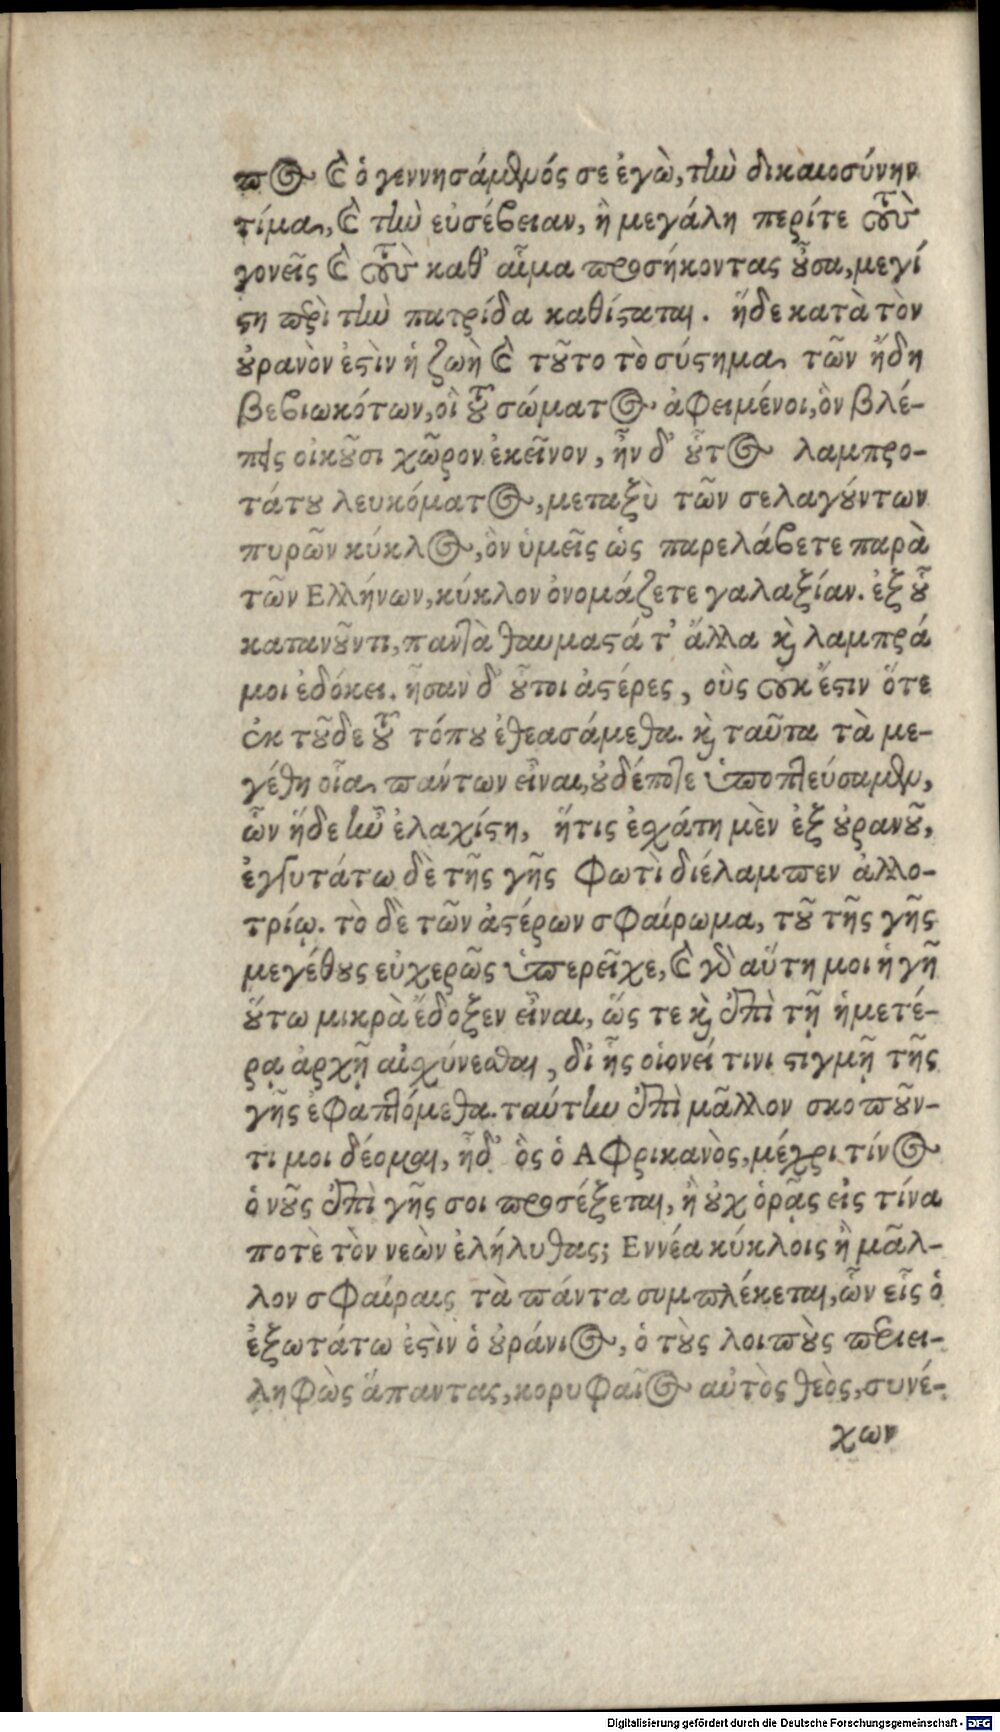 πος καὶ ὁ γεννησάμενός σε ἐγὼ, τὴν δικαιοσύνην
τίμα, καὶ τὴν εὐσέβειαν, ἣ μεγάλη περίτε τοὺς
γονεῖς καὶ τοὺς καθ' αἷμα προσήκοντας οὖσα, μεγί
στη περὶ τὴν πατρίδα καθίσταται. ἥδε κατὰ τὸν
οὐρανὸν ἐστὶν ἡ ζωὴ καὶ τοῦτο τὸ σύστημα τῶν ἤδη
βεβιωκότων, οἳ τοῦ σώματος ἀφειμένοι, ὃν βλέ-
πεις οἰκοῦσι χῶρον ἐκεῖνον, ἦν δ' οὗτος λαμπρο-
τάτου λευκόματος, μεταξὺ τῶν σελαγούντων
πυρῶν κύκλος, ὃν ὑμεῖς ὡς παρελάβετε παρὰ
τῶν Ελλήνων, κύκλον ὀνομάζετε γαλαξίαν. ἐξ οὗ
κατανοῦντι, πάντα θαυμαστά τ' ἄλλα καὶ λαμπρά
μοι ἐδόκει. ἦσαν δ' οὗτοι ἀστέρες, οὓς οὐκ ἔστιν ὅτε
ἐκ τοῦδε τοῦ τόπου ἐθεασάμεθα. καὶ ταῦτα τὰ με-
γέθη οἷα πάντων εἶναι, οὐδέποτε ὑποπτεύσαμεν,
ὧν ἥδε ἦν ἐλαχίστη, ἥτις ἐσχάτη μὲν ἐξ οὐρανοῦ,
ἐγγυτάτω δὲ τῆς γῆς φωτὶ διέλαμπεν ἀλλο-
τρίῳ. τὸ δὲ τῶν ἀστέρων σφαίρωμα, τοῦ τῆς γῆς
μεγέθους εὐχερῶς ὑπερεῖχε, καὶ γὰρ αὕτη μοι ἡ γῆ
οὕτω μικρὰ ἔδοξεν εἶναι, ὥς τε καὶ ἐπὶ τῇ ἡμετέ-
ρᾳ ἀρχῇ αἰσχύνεσθαι, δι' ἧς οἱονεί τινι στιγμῇ τῆς
γῆς ἐφαπτόμεθα. ταύτην ἐπὶ μᾶλλον σκοποῦν-
τι μοι δέομαι, ἦδ' ὃς ὁ Αφρικανὸς, μέχρι τίνος
ὁ νοῦς ἐπὶ γῆς σοι προσέξεται, ἢ οὐχ ὁρᾷς εἰς τίνα
ποτὲ τὸν νεὼν ἐλήλυθας; Εννέα κύκλοις ἢ μᾶλ-
λον σφαίραις τὰ πάντα συμπλέκεται, ὧν εἷς ὁ
ἐξωτάτω ἐστὶν ὁ οὐράνιος, ὁ τοὺς λοιποὺς περιει-
ληφὼς ἅπαντας, κορυφαῖος αὐτὸς θεὸς, συνέ-
χων
Digitalisierung gefördert durch die Deutsche Forschungsgemeinschaft - DFG